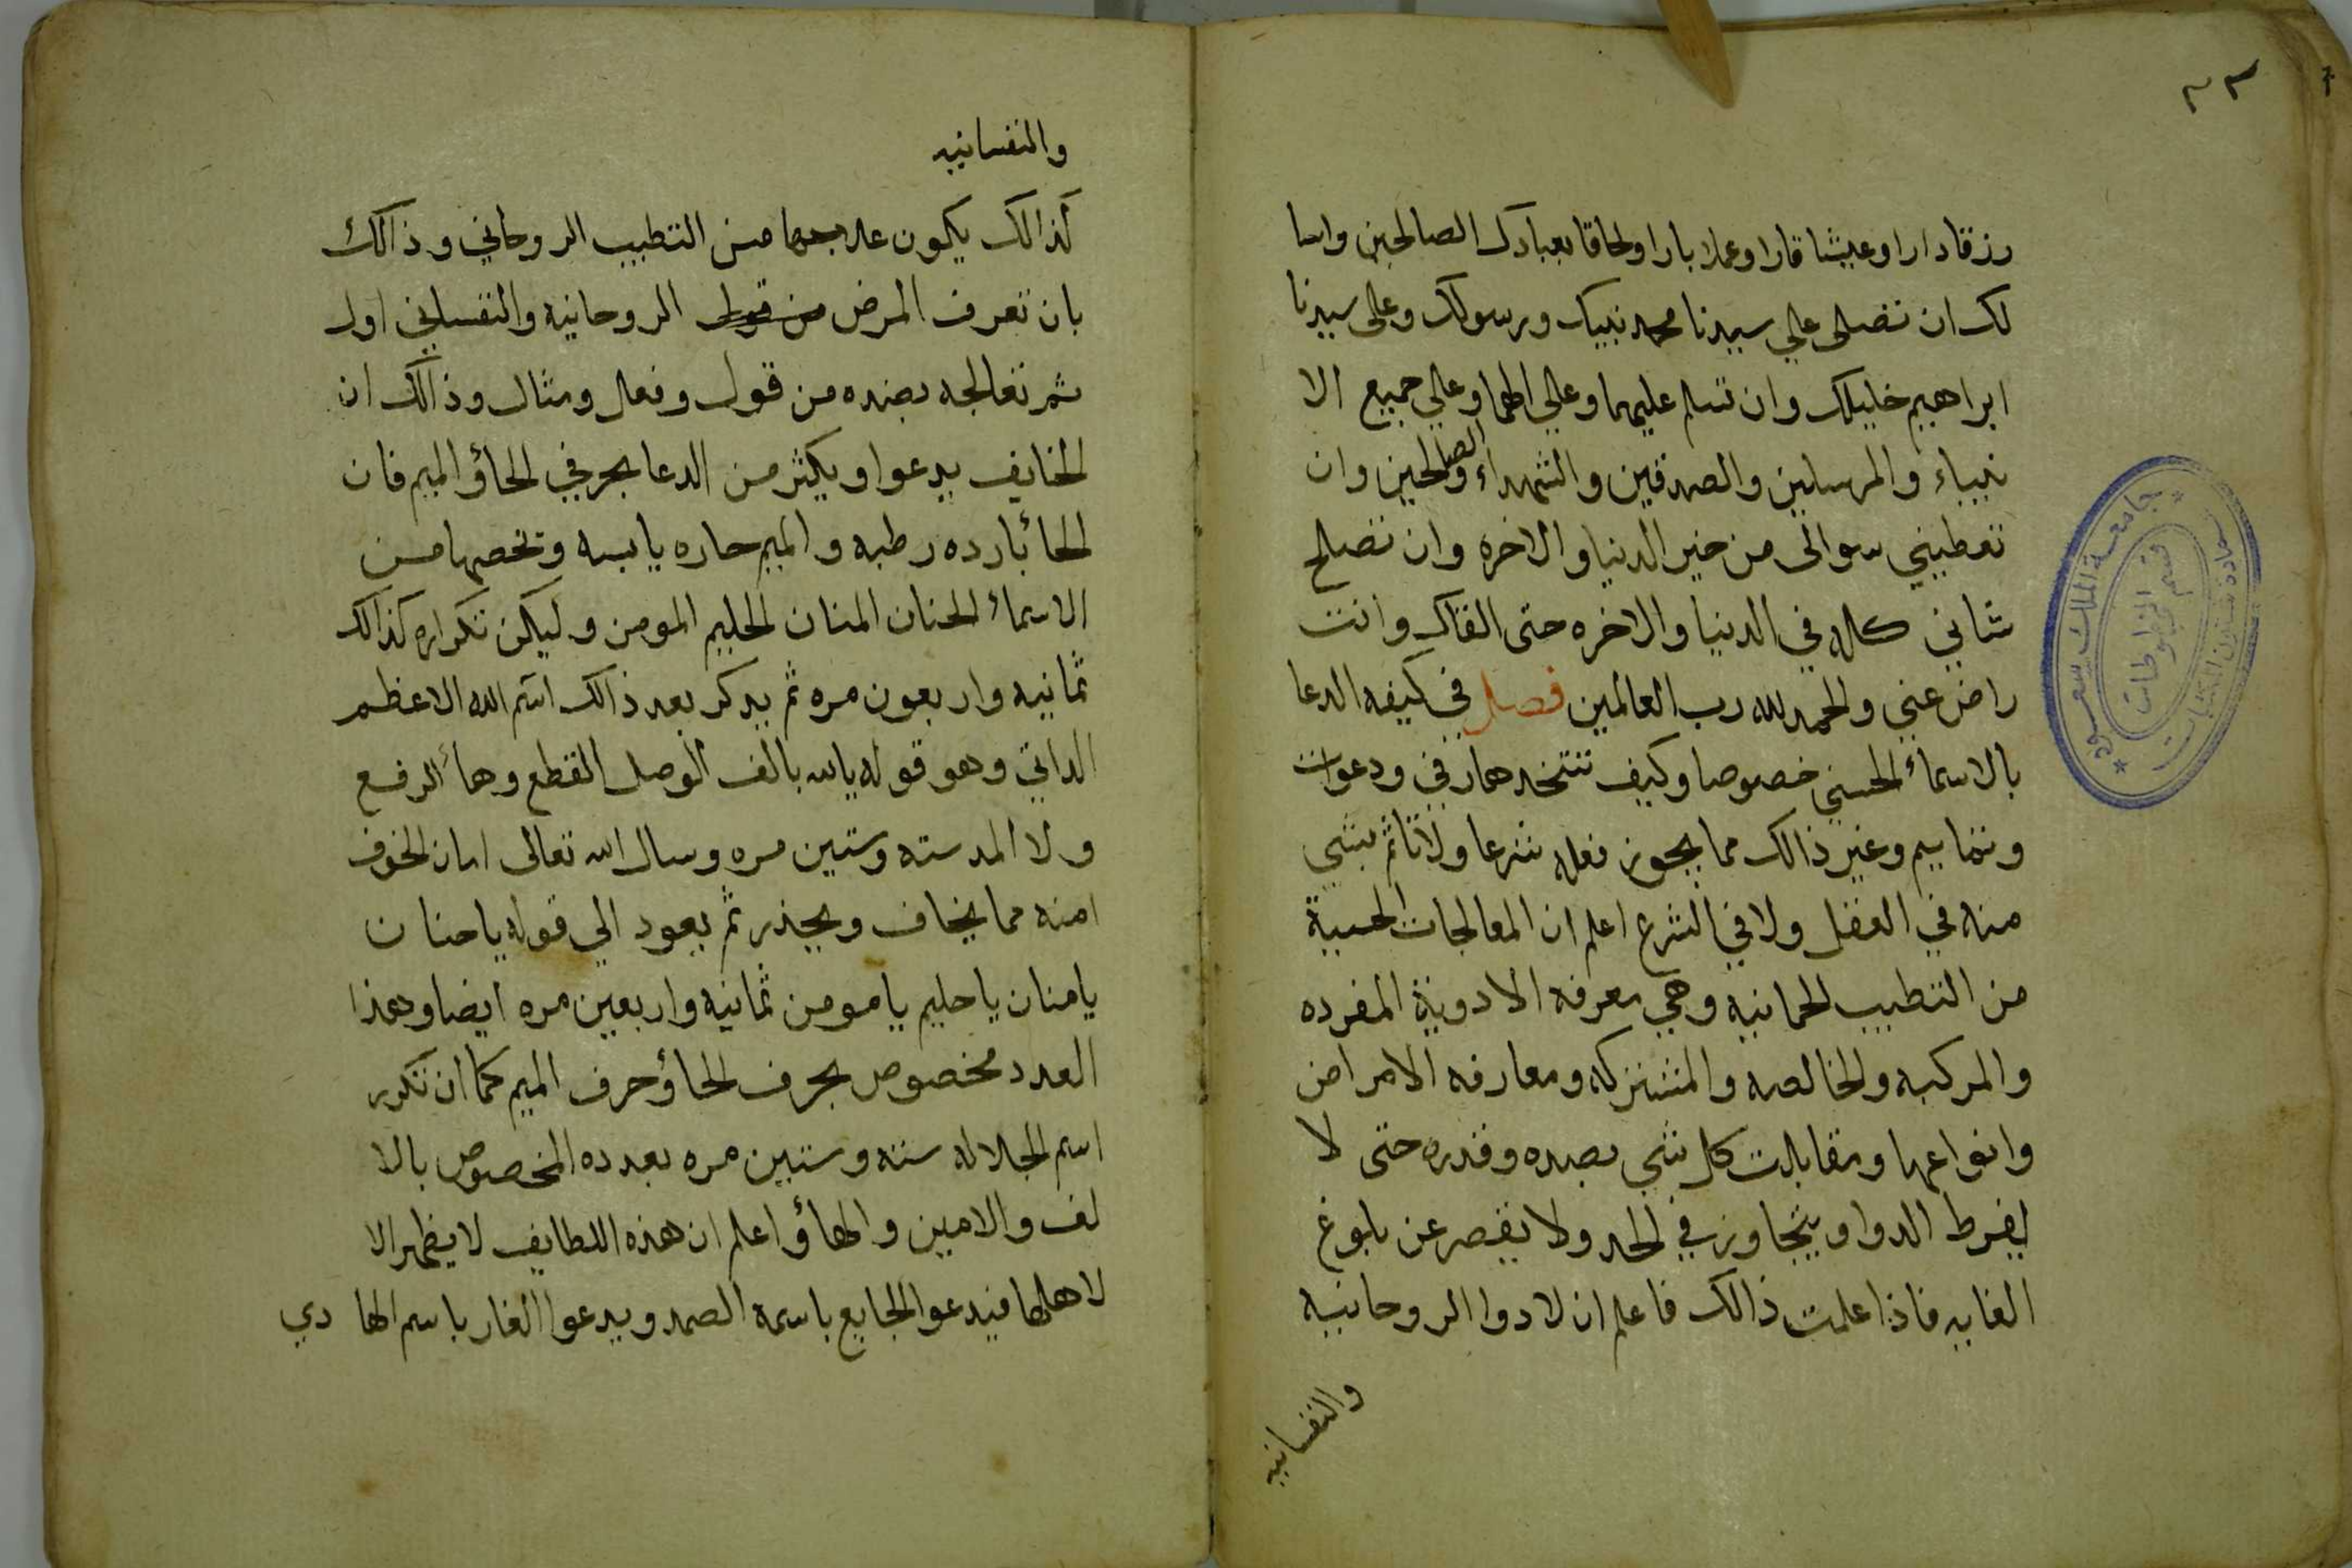 ٣٣
رزقا دارا وعيشا قارا وعملا بارا ولحاقا بعبادك الصالحين واسا
لك ان تصلى علي سيدنا محمد نبيك ورسولك وعلى سيدنا
ابراهيم خليلك وان تسلم عليهما وعلي الهما وعلي جميع الا
نبياء والمرسلين والصدقين والشهداء والصالحين وان
تعطيني سوالى من خير الدنيا والاخره وان تصلح
شاني كله في الدنيا والاخره حتى القاك وانت
راض عني والحمد لله رب العالمين فصل في كيفه الدعا
بالاسماء الحسني خصوصا وكيف تتخد هما رقي ودعوات
وتمايم وغير ذالك مما يجوز فعله شرعا ولا تاثم بشي
منه في العقل ولا في الشرع اعلم ان المعالجات الحسية
من التطبيب الجمانيه وهي معرفه الادوية المفرده
والمركبه والخالصه والمشتركه ومعارفه الامراض
وانواعها ومقابلات كل شي بصده وقدره حتى لا
يفرط الدوا ويتجاوز في الحد ولا يقصر عن بلوغ
الغايه فاذا علمت ذالك فاعلم ان لادوا الروحانيه
والنفسانيه
جامعة الملك سعود
عمادة شئون المكتبات
قسم المخطوطات
والنفسانيه
كذالك يكون علاجهما من التطبيب الروحاني وذالك
بان تعرف المرض من قول الروحانيه والنفساني اول
ثم تعالجه بضده من قول وفعل ومثال وذالك ان
الخايف يدعوا ويكثر من الدعا بحرفي الحاؤ الميم فان
الحا بارده رطبه والميم حاره يابسه وتخصها من
الاسماء الحنان المنان الحليم المومن وليكن تكراره كذالك
ثمانيه واربعون مره ثم يدكر بعد ذالك اسم الله الاعظم
الداتي وهو قوله يالله بالف الوصل القطع وهاء الرفع
ولا المد سته وستين مره وسال الله تعالى امان الخوف
امنه مما يخاف ويحذر ثم يعود الي قوله يا حنان
يا منان يا حليم يا مومن ثمانيه واربعين مره ايضا وهذا
العدد مخصوص بحرف الحاؤ حرف الميم كما ان تكرر
اسم الجلاله سته وستين مره بعدده المخصوص بالا
لف والامين والهاؤ اعلم ان هذه اللطايف لا يظهر الا
لاهلها فيدعوا الجايع باسمه الصمد ويدعوا الغار باسم الها دي